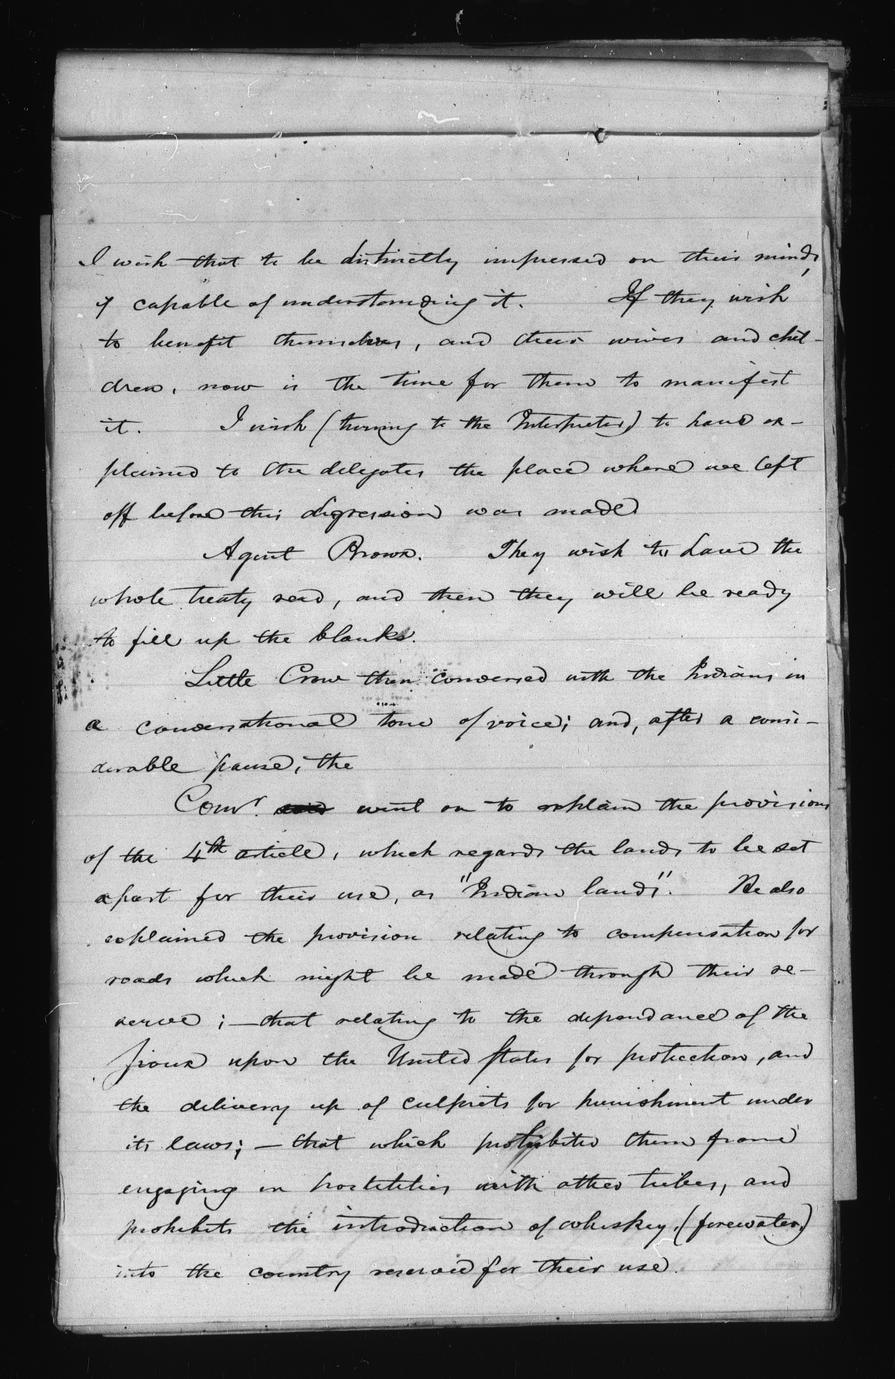 I wish that to be distinctly impressed on their minds,
if capable of understanding it. If they wish
to benefit themselves, and their wives and chil-
dren, now is the time for them to manifest
it. I wish (turning to the Interpreter) to have ex-
plained to the delegates the place where we left
off before this digression was made
Agent Brown. They wish to have the
whole treaty read, and then they will be ready
to fill up the blanks.
Little Crow then conversed with the Indians in
a conversational tone of voice; and, after a consi-
derable pause, the
Comr. went on to explain the provisions
of the 4th article, which regards the lands to be set
apart for their use, as "Indian lands". He also
explained the provision relating to compensation for
roads which might be made through their re-
serve;—that relating to the dependance of the
Sioux upon the United States for protection, and
the delivery up of culprits for punishment under
its laws;—that which prohibited them from
engaging in hostilities with other tribes, and
prohibits the introduction of whiskey, (firewater)
into the country reserved for their use.